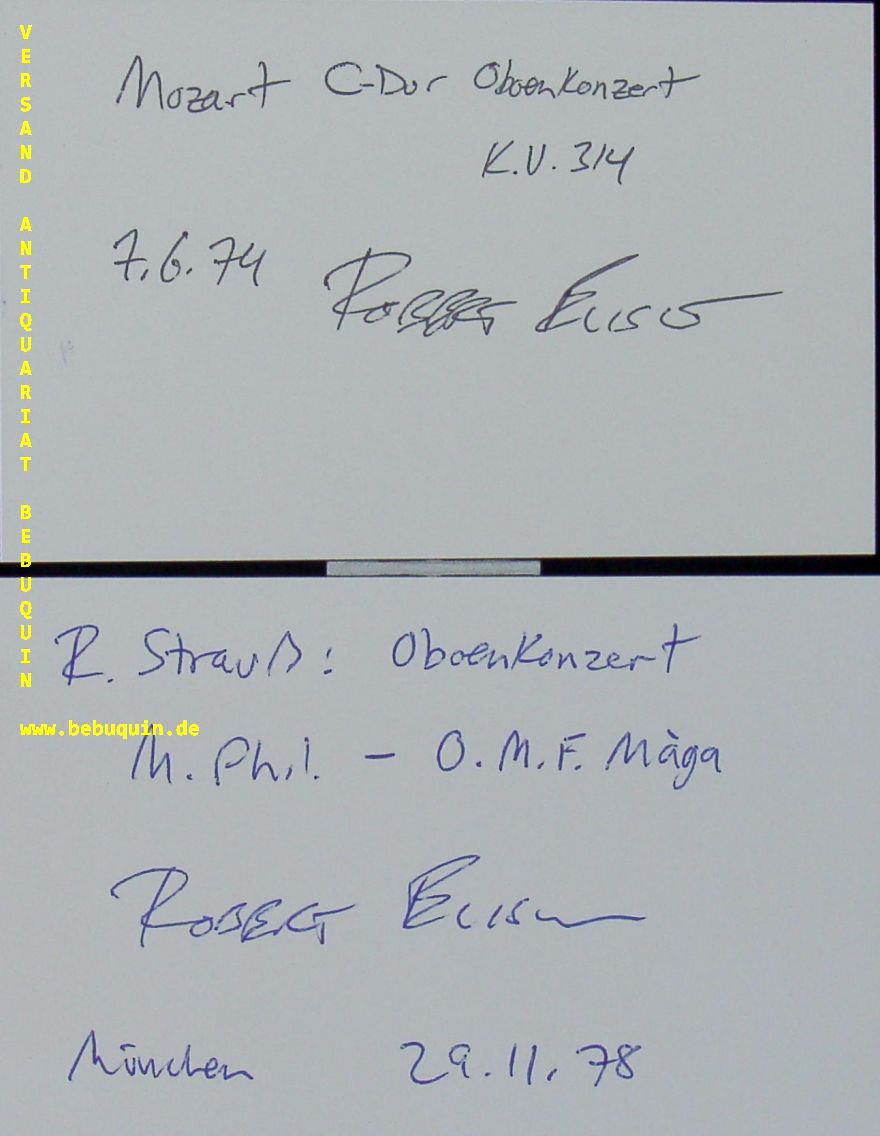 Mozart C-Dur Oboenkonzert
K.V. 314
7.6.74 Robert Eliscu
R. Strauß: Oboenkonzert
M. Phil. - O.M.F. Màga
Robert Eliscu
München 29.11.78
VERSAND ANTIQUARIAT BEBUQUIN
www.bebuquin.de